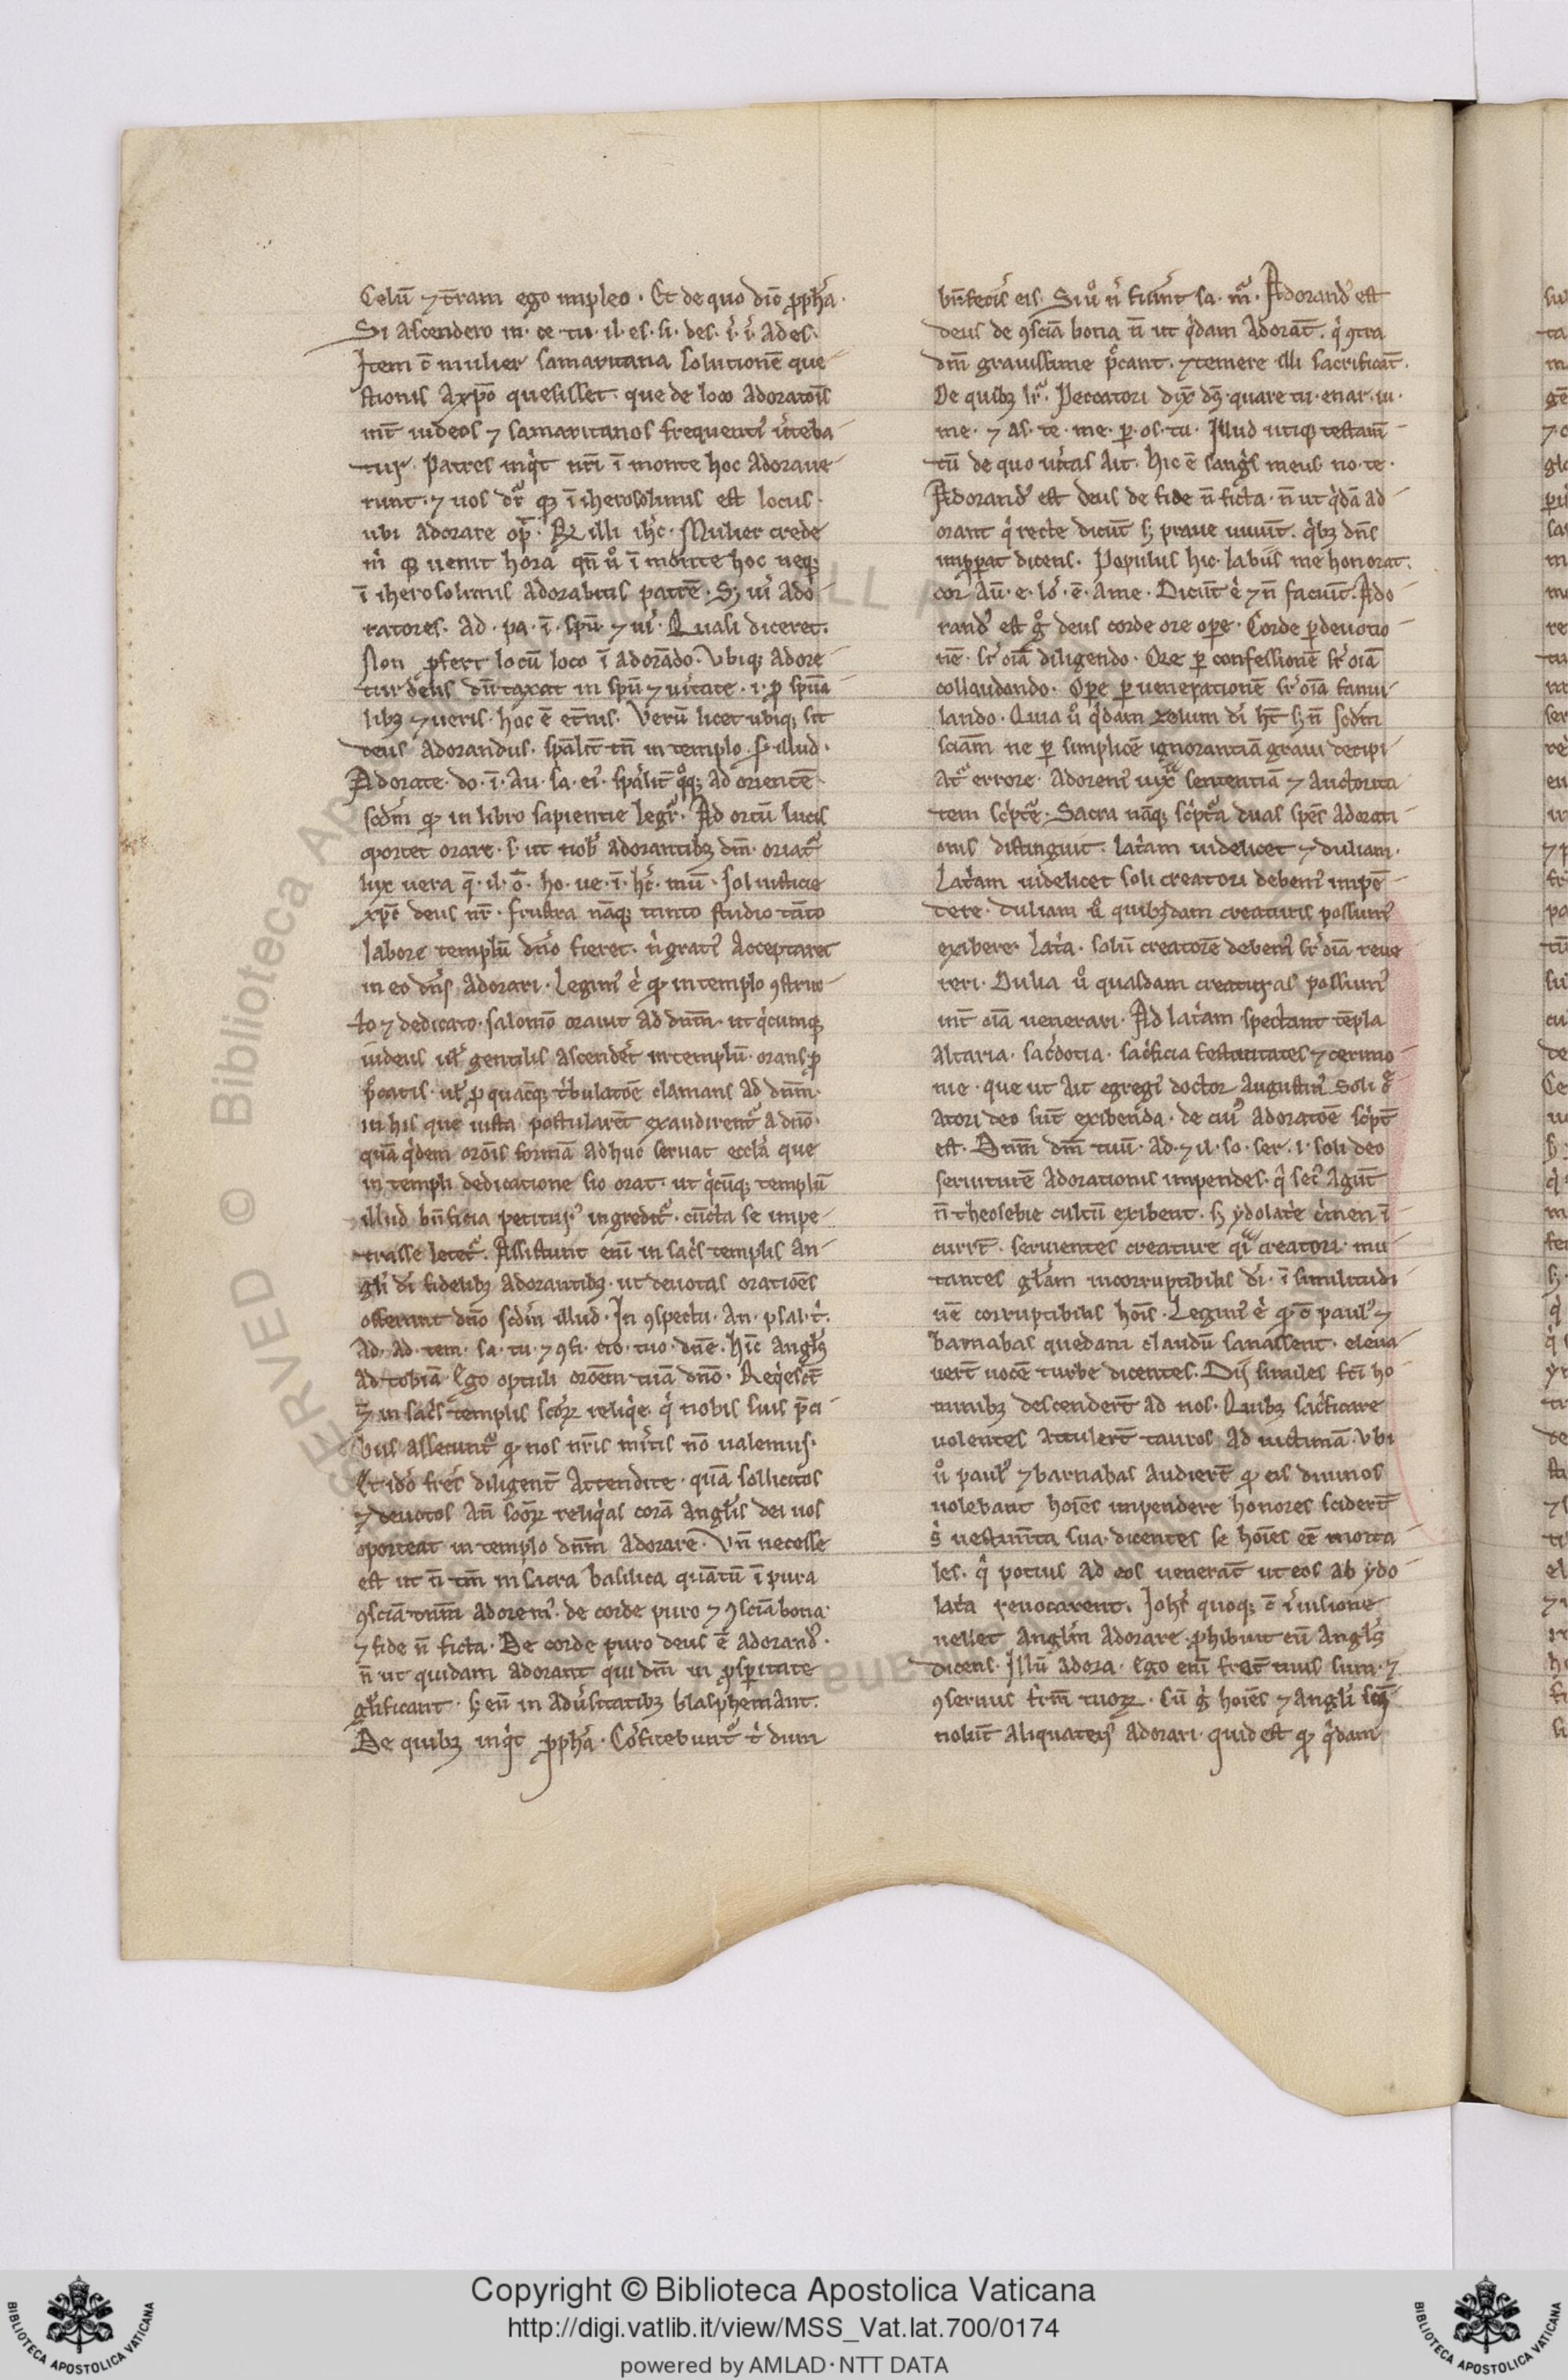 Celū ⁊ t̄ram ego impleo. Et de quo dic̄ ꝓph̄a.
Si ascendero in. ce. tu. il. es. si. des. i. i. ades.
Item c̄ mulier samaritana solutionē que
stionis a xp̄o quesisset. que de loco adoratōis
int̄ iudeos ⁊ samaritanos frequent̄ ūteba
tur. Patres inq̇t nr̄i ī monte hoc adoraue
runt. ⁊ uos dr̄ qꝫ ī iherosolimis est locus
ubi adorare op̄. R̄ illi ih̄c. Mulier crede
ṁ qꝫ uenit hora qn̄ ů ī monte hoc neqꝫ
ī iherosolimis adorabitis patrē. Sꝫ ūi ado
ratores. ad. pa. ī. spū ⁊ ūi. Quasi diceret.
Non p̄fert locū loco ī adorādo. Vbiqꝫ adore
tur deus dūtaxat in spū ⁊ ūitate. i. ꝓ spūa
libꝫ ⁊ ueris. hoc ē et̄nis. Verū licet ubiqꝫ sit
deus adorandus. spāliť tn̄ in templo. s. illud.
Adorate. do. ī. au. sa. ei. spāliť q̊qꝫ ad orientē
scdm̄ qꝫ in libro sapientie legr̄. Ad ortū lucis
oportet orare. s. ut nob̄ adorantibꝫ dn̄m. oriat̄
lux uera q̄. il. o. ho. ue. ī. hc̄. mū. sol iusticie
xp̄c deus nr̄. frustra nāqꝫ tanto studio tāto
labore templū dn̄o fieret. n̄ grat̄ acceptaret
in eo dn̄s adorari. Legim̄ ē qꝫ in templo ꝯstruc
to ⁊ dedicato. salomō orauit ad dn̄m. ut q̇cumqꝫ
iudeus ul̄ gentilis ascendēt in templū. orans ꝓ
p̄catis. ul̄ ꝓ quacūqꝫ t̄bulatōe clamans ad dn̄m.
in his que iusta postularēt exaudirent̄ a dn̄o.
quā q̇dem orōis formā adhuc seruat eccl̄a que
in templi dedicatione sic orat. ut q̇cūqꝫ templū
illud bn̄ficia petitur̄ ingredit̄. cūcta se impe
trasse letet̄. Assistunt eni in sac̄s templis an
gl̄i dī fidelibꝫ adorantibꝫ. ut deuotas oratiōes
offerant dn̄o scdm̄ illud. In ꝯspectu. an. psal. t̄.
Ad. ad. tem. sa. tu. ⁊ ꝯfi. no. tuo. dn̄e. hīc angl̄s
ad tobiā. Ego optuli orōem tuā dn̄o. Req̇esct̄
⁊ in sac̄s templis sc̄oꝝ reliq̇e. q̇ nobis suis p̄ci
bus assecunt̄ qꝫ nos nr̄is mīitis nō ualemus.
Et idō frēs diligent̄ attendite. quā sollicitos
⁊ deuotos an̄ sc̄oꝝ reliq̇as corā angl̄is dei uos
oporteat in templo dn̄m adorare. Vn̄ necesse
est ut n̄ tm̄ in sacra basilica quātū ī pura
ꝯsciā dn̄m adorem̄. de corde puro ⁊ ꝯsciā bona
⁊ fide n̄ ficta. De corde puro deus ē adorand̄.
n̄ ut quidam adorant qui dn̄m in ꝓsp̄itate
gl̄ificant. sꝫ eū in aduˢitatibꝫ blasphemānt.
De quibꝫ inq̇t ꝓph̄a. Cōfitebunt̄ t̄ dum
bn̄fecīs eis. Si ů n̄ fuīnt sa. m̄. Adorand̄ est
deus de ꝯsciā bona n̄ ut q̇dam adorāt. q̇ ꝯtra
dn̄m grauissime p̄cant. ⁊ temere illi sacrificāt.
De quibꝫ sr̄. Peccatori dix̄ dꝫ. quare tu. enar. iu.
me. ⁊ as. te. me. ꝑ. os. tu. Illud utiqꝫ testam̄
tū de quo ūitas ait. Hic ē sang̉s meus. no. te.
Adorand̄ est deus de fide n̄ ficta. n̄ ut q̇dā ad
orant q̇ recte dicūt sꝫ praue uiuūt. q̇bꝫ dn̄s
imꝓꝑat dicens. Populus hic labiis me honorat.
cor aū. e. lo. ē. a me. Dicūt ē ⁊ n̄ faciūt. Ado
rand̄ est g̊ deus corde ore oꝑe. Corde ꝑ deuotio
nē. sr̄ oīa diligendo. Ore ꝑ confessionē sr̄ oīa
collaudando. Opꝑe ꝑ uenerationē sr̄ oīa famu
lando. Quia ů q̇dam zelum dī hn̄t sꝫ n̄ scdm̄
sciam̄ ne ꝑ simplicē ignorantiā graui decipi
at̄ errore. adorem̄ iux̄ sententiā ⁊ auctorita
tem sc̉pt̄e. Sacra nāqꝫ sc̉pt̄a duas spēs adorati
onis distinguit. lat̄iam uidelicet ⁊ duliam.
Lat̄iam uidelicet soli creatori debem̄ impē
dere. duliam ů quibꝫdam creaturis possum̄
exibere. Lat̄ia. solū creatorē debem̄ sr̄ oīa reue
reri. Dulia ů quasdam creaturas possum̄
int̄ oīa uenerari. Ad lat̄iam spectant tēpla
altaria. sac̄dotia. sac̄ficia festiuitates ⁊ cerimo
nie. que ut ait egregī doctor augustin̄ soli c̄
atori deo sūt exibenda. de cui adoratōe sc̉pt̄
est. Dn̄m dn̄m tuū. ad. ⁊ il. so. ser. i. soli deo
seruitutē adorationis impendes. q̇ sec̄ agūt
n̄ theosebie cultū exibent. sꝫ ydolat̄ie c̄men ī
currt̄. seruientes creature q̄i creatori. mu
tantes gl̄am incorruptibilis dī. ī similitudi
nē corruptibilis hoīs. Legim̄ ē qꝫ c̄ paul̄ ⁊
barnabas quedam claudū sanassent. eleua
uert̄ uocē turbe dicentes. Dij similes fc̄i ho
minibꝫ descendert̄ ad nos. Quibꝫ sac̄ficare
uolentes attulert̄ tauros ad uictimā. Vbi
ů paul̄ ⁊ barnabas audiert̄ qꝫ eis diuinos
uolebant hoīes impendere honores scidert̄
s̄ uestim̄ta sua. dicentes se hoīes eē morta
les. q̇ potius ad eos uenerāt ut eos ab ydo
lat̄ia reuocarent. Ioh̄s quoqꝫ c̄ ī uisione
uellet angl̄m adorare ꝓhibuit eū angl̄s
dicens. Illū adora. Ego eni frāt tuus sum. ⁊
ꝯseruus frm̄ tuoꝝ. Cū g̊ hoīes ⁊ angl̄i
nolūt aliquaten̄ adorari. quid est qꝫ q̇dam
Copyright © Biblioteca Apostolica Vaticana
http://digi.vatlib.it/view/MSS_Vat.lat.700/0174
powered by AMLAD·NTT DATA